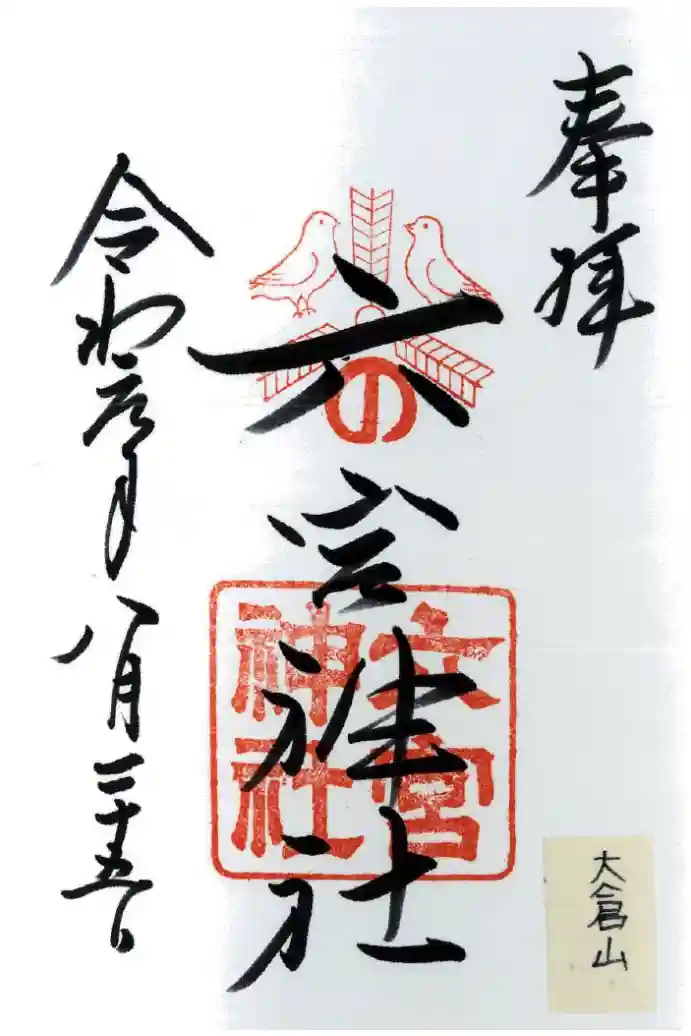 奉拝
の
六宮神社
六宮
神社
令和元年八月二十五日
大倉山